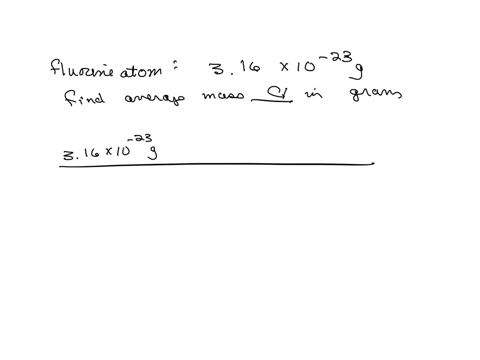 fluorine atom : 3.16 × 10⁻²³ g
find average mass Cl in grams
3.16 × 10⁻²³ g